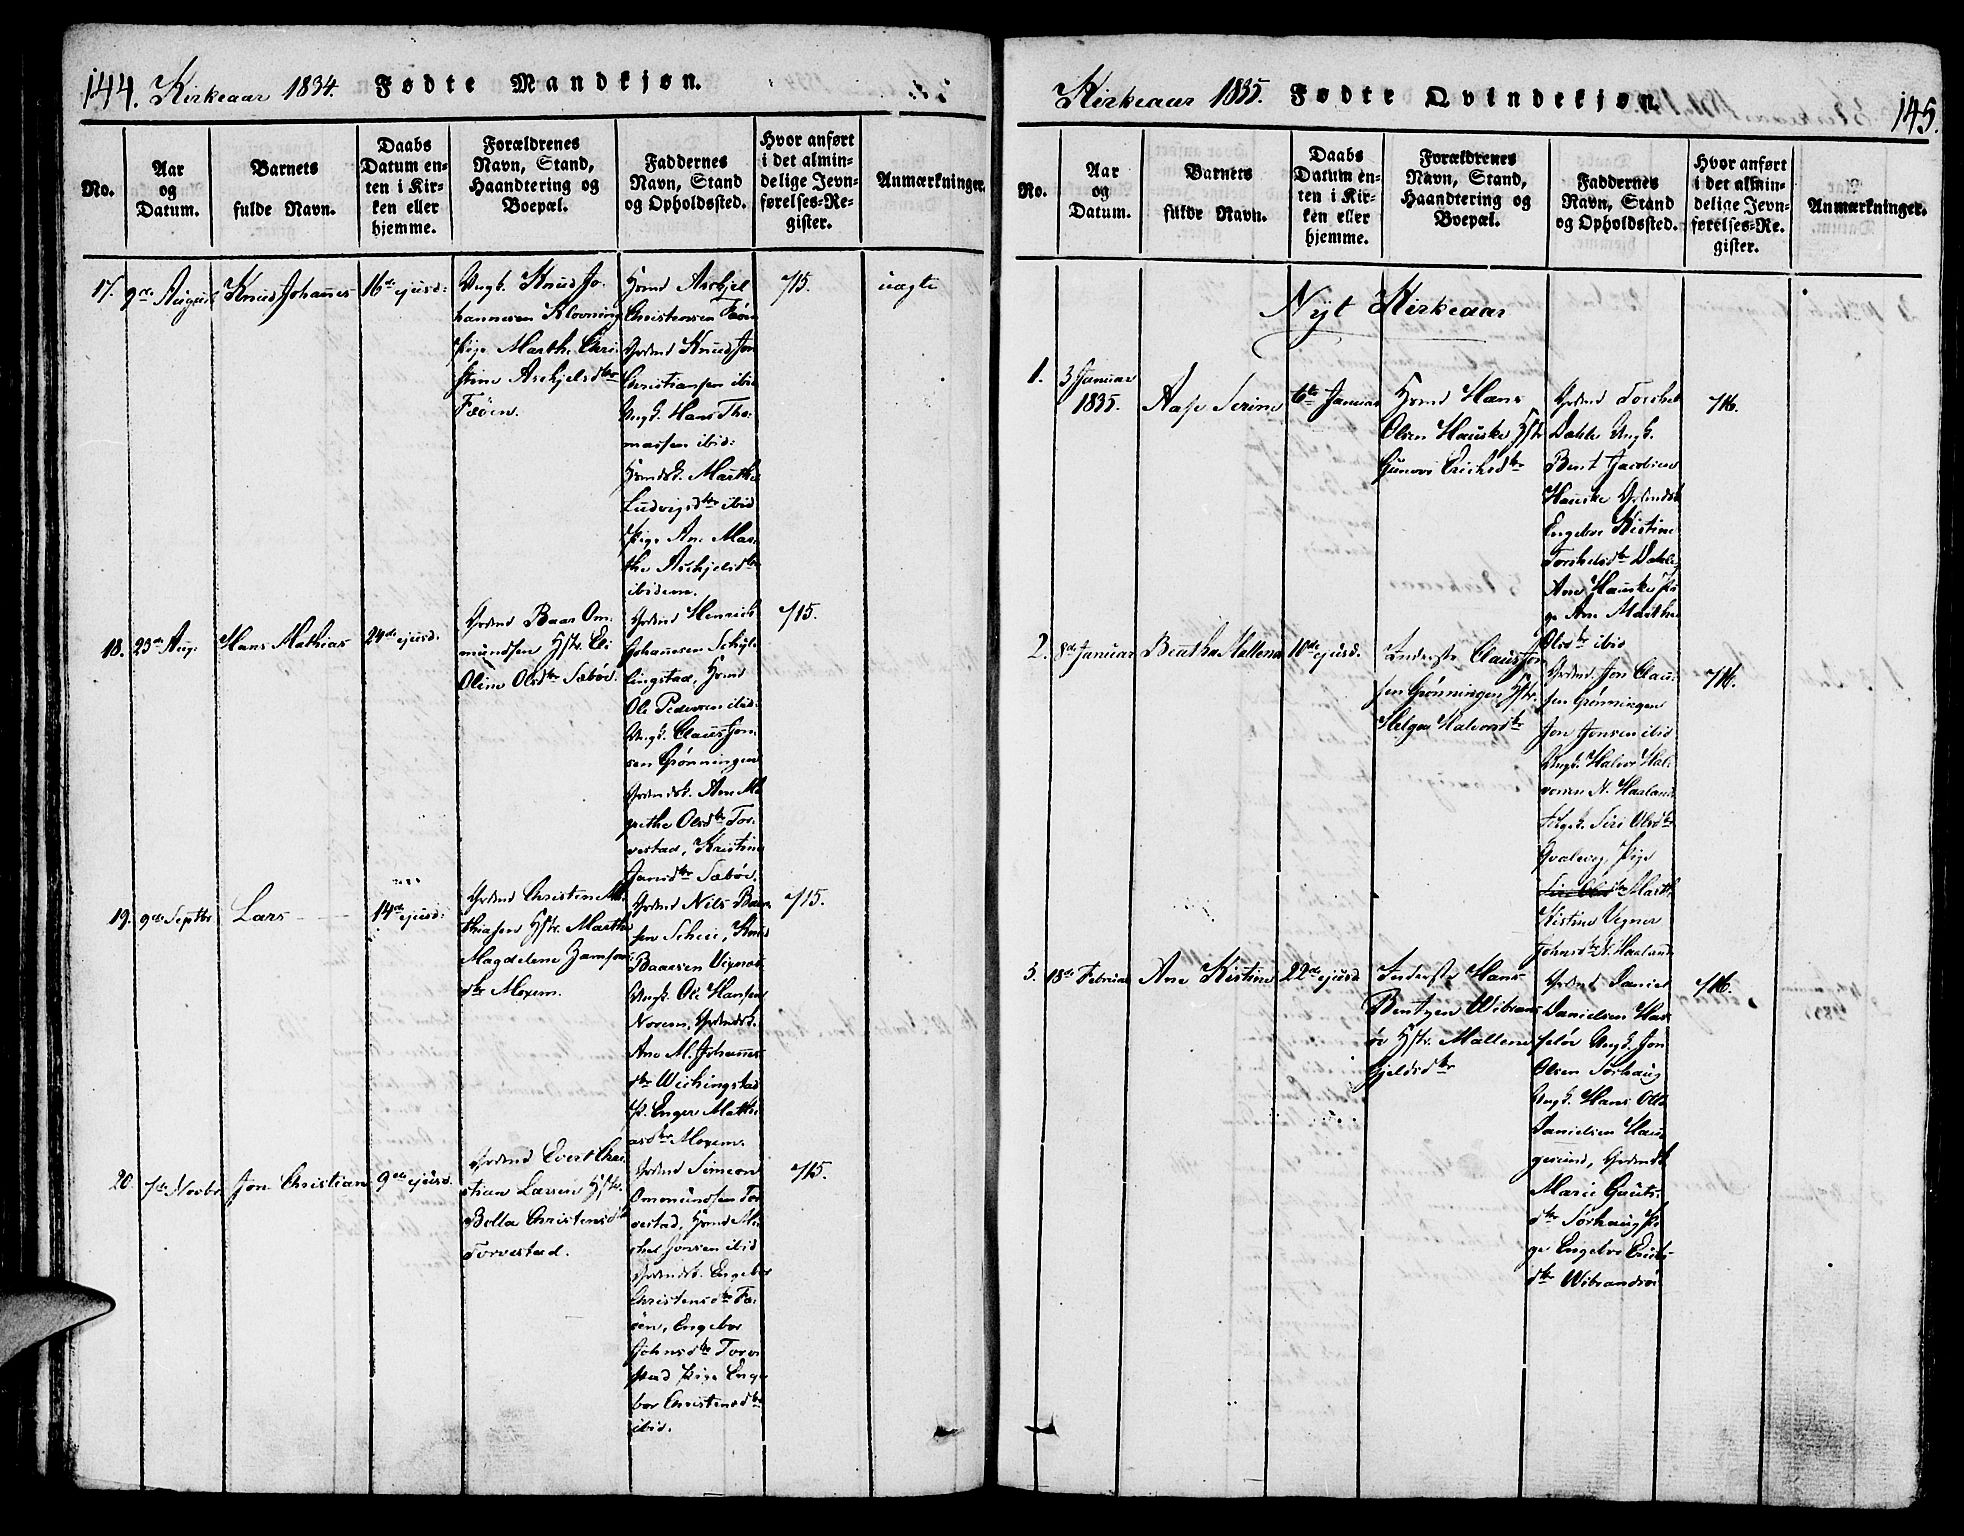 144. Kirkeaar 1834. Fødte Mandkjøn.
No.
Aar
og
Datum.
Barnets
fulde Navn.
Daabs
Datum en-
ten i Kir-
ken eller
hjemme.
Forældrenes
Navn, Stand,
Haandtering og
Boepæl.
Faddernes
Navn, Stand
og Opholdssted.
Hvor anført
i det almin-
delige Jevn-
førelses-Re-
gister.
Anmærkninger.
17.
9de August
Knud Johannes
16de ejusd:
Ungk. Knud Jo-
hannesen Klovning
Pige Marthe Chri
stine Askjelsdtr
Føøen.
Hmd Askjel
Christensen Føøen
Grdmd Knud Jon
Christiansen ibid
Ungk. Hans Tho-
masen ibid:
Hmdsk. Marthe
Ludvigsdtr ibid
Pige Ane Mar-
the Askjelsdtr
ibidem.
715.
uægte
18.
23de Aug.
Hans Mathias
24de ejusd:
Grdmd Baar Om-
mundsen Hstr. Eli
Oline Olsdtr Sæbøe.
Grdmd Henrich
Johannesen
lingstad, Hmd
Ole Pedersen ibid:
Ungk. Claus Jon-
sen Grønningen
Grdmdsk. Ane Ma
grethe Olsdtr Tor-
vestad, Kristine
Jansdtr Sæbøe.
715.
19.
9de Septbr
Lars
14de ejusd:
Grdmd Christen Ma
thiasen Hstr. Marthe
Magdelene
dtr Moxem.
Grdmd Nils Baar
sen Scheie, Knud
Baarsen
Ungk. Ole Hansen
Norem, Grdmdsk.
Ane M. Johannes
dtr Wichingstad
P. Engere Mathi
asdtr Moxem.
715.
20.
7de Novbr
Jon Christian
9de ejusd.
Grdmd Evert Chri
stian Larsen Hstr.
Bella Christensdtr
Torvestad.
Grdmd Simeon
Ommundsen Tor
vestad, Hmd Mi-
chel Jonsen ibid
Grdmdsk. Engebor
Christensdtr Fæ-
øen, Engebor
Johnsdtr Torve
stad Pige Enge
bor Christensdtr
ibid.
715.
Kirkeaar 1835. Fødte Qvindekjøn.
145.
No.
Aar
og
Datum.
Barnets
fulde Navn.
Daabs
Datum en-
ten i Kir-
ken eller
hjemme.
Forældrenes
Navn, Stand,
Haandtering og
Boepæl.
Faddernes
Navn, Stand
og Opholdssted.
Hvor anført
i det almin-
delige Jevn-
førelses-Re-
gister.
Anmærkninger.
Nyt Kirkeaar
1.
3 Januar
1835.
Aase Serine
6te Januar
Hmd Hans
Olsen Hauske Hstr
Gunvor Erichsdtr
Grdmd Torchel
Dahle Ungk.
Bent Jacobsen
Hauske Grdmdsk
Engebor Kistine
Torchelsdtr Dahle,
Ane Hauske Pi
ge Ane Marthe
Olsdtr ibid
716.
2.
8de Januar
Bentha Mallena
10de ejusd.
Inderste Claus Jon
sen Grønningen Hstr.
Helga Halvorsdtr
Grdmd Jon Clau
sen Grønningen
Jon Jonsen ibid
Ungk. Halvor Hal
vorsen N. Haaland
Siri Olsdtr
Qvalevig, Pige
Marth
Kistine Vegner
Johnsdtr N. Haaland
716.
3.
18de Februar
Ane Kistine
22de ejusd
Inderste Hans
Bentzen Wibrans
øe Hstr. Mallene
Kjeldsdtr
Grdmd Daniel
Danielsen Has-
seløe Ungk. Jon
Olsen Sørhaug
Ungk. Hans Otto
Danielsen Hau
gesund, Grdmdsk
Marie Gauts-
dtr Sørhaug Pi-
ge Engebor
dtr Wibrandsøe
716.